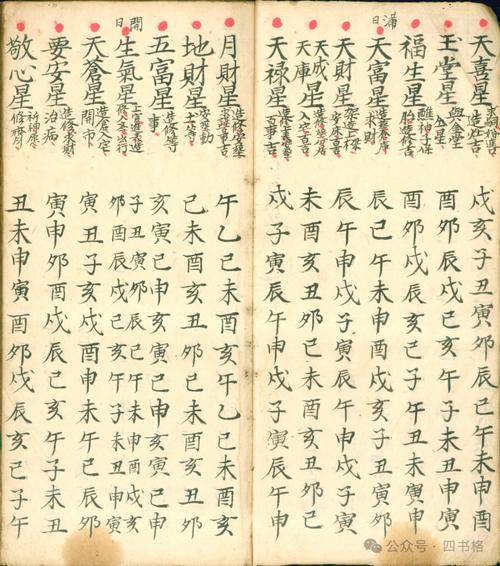 滿日
天喜星 戌亥子丑寅卯辰巳午未申酉
玉堂星 與金堂仝星 卯酉辰戌巳亥午子未丑申寅
福生星 酉卯戌辰亥巳子午丑未寅申
天富星 造葬倉庫求財 辰巳午未申酉戌亥子丑寅卯
天財星 辰午申戌子寅辰午申戌子寅
天成星 天庫星 入宅吉 未酉亥丑卯巳未酉亥丑卯巳
天禄星 百事吉 戌子寅辰午申戌子寅辰午申
月財星 午乙巳未酉亥午乙巳未酉亥
地財星 巳未酉亥丑卯巳未酉亥丑卯
五富星 造修等事 亥寅巳申亥寅巳申亥寅巳申
開日
生氣星 子丑寅卯辰巳午未申酉戌亥
卯酉辰戌巳亥午子未丑申寅
天蒼星 造倉入宅開市 寅丑子亥戌酉申未午巳辰卯
要安星 造修求財治病 寅申卯酉戌辰巳亥午子未丑
敬心星 祈神 丑未申寅酉卯戌辰亥巳子午
公众号·四书格